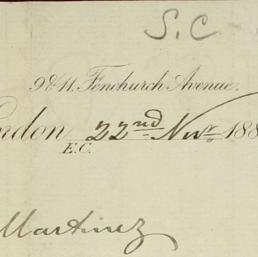 S.C
9 & 11. Fenchurch Avenue.
London 22nd Novr 188
E.C.
Martinez